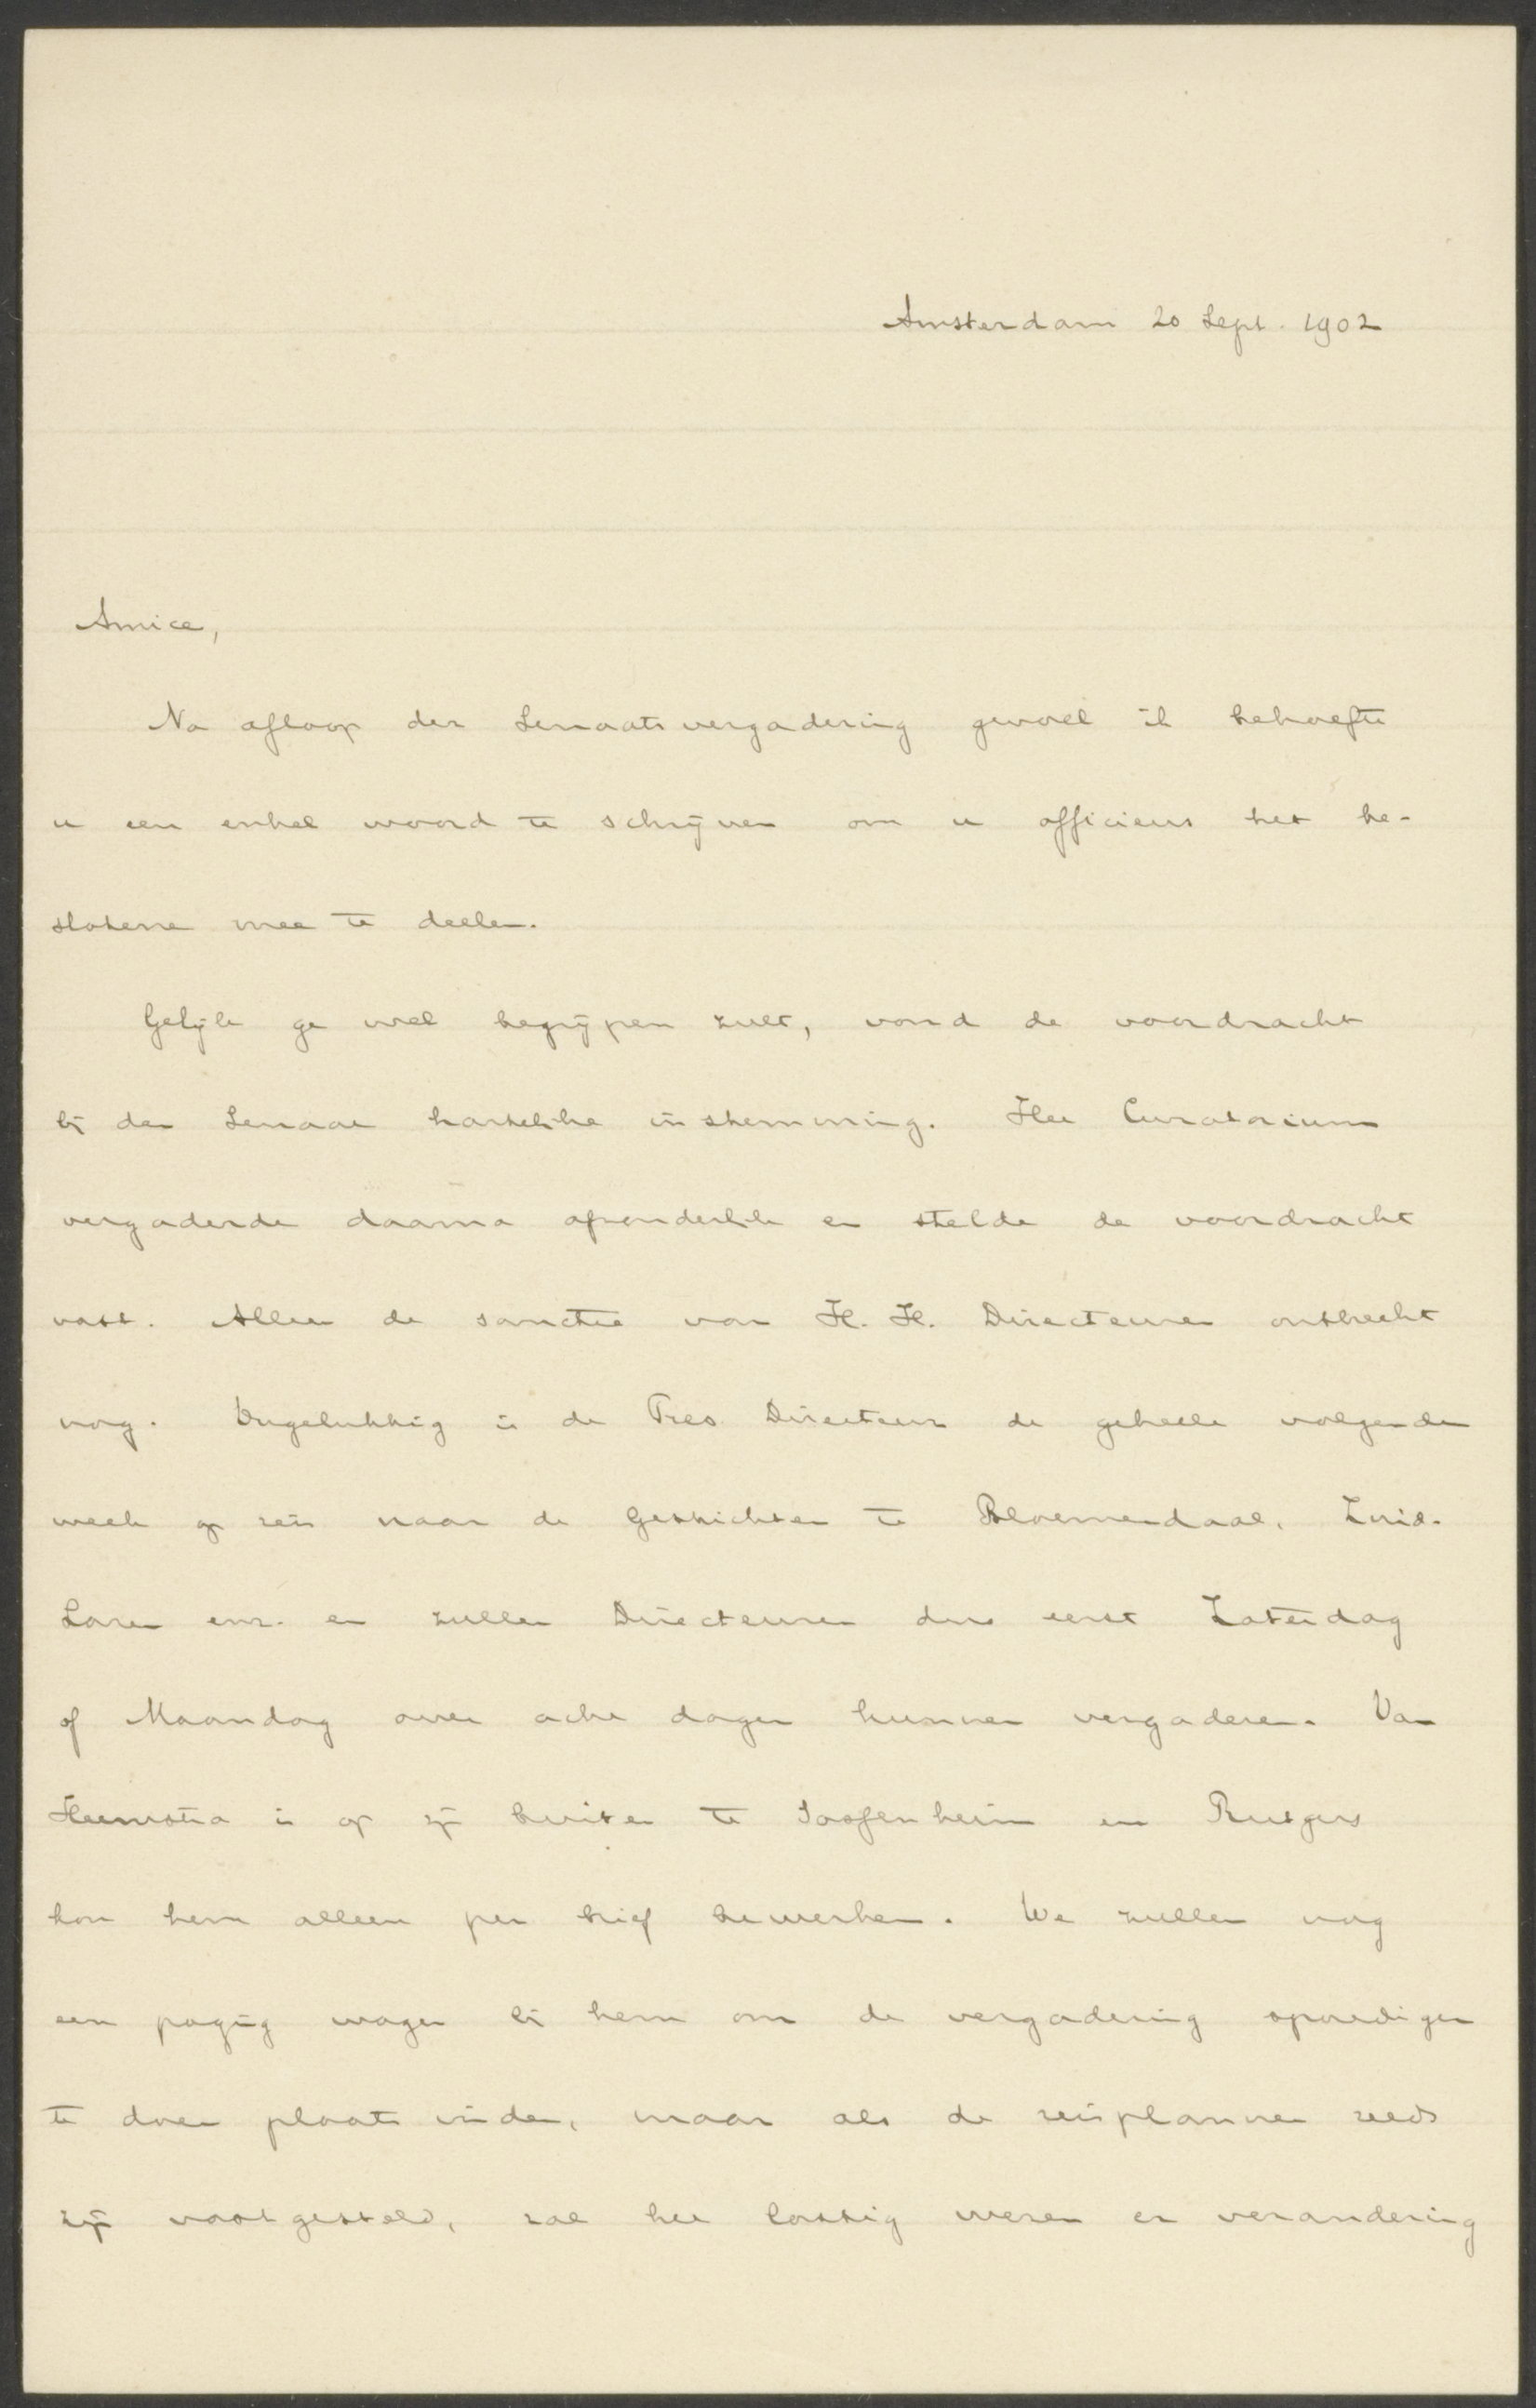 Amsterdam 20 Sept. 1902
Amice,
Na afloop der Senaatsvergadering gevoel ik behoefte
u een enkel woord te schrijven om u officieus het be-
slotene mee te deelen.
Gelijk ge wel begrijpen zult, vond de voordracht
bij den Senaat hartelijke instemming. Het Curatorium
vergaderde daarna afzonderlijk en stelde de voordracht
vast. Alleen de sanctie van H. H. Directeuren ontbreekt
nog. Ongelukkig is de Pres. Directeur de geheele volgende
week op reis naar de Gestichten te Bloemendaal, Zuid-
Laren enz. en zullen Directeuren dus eerst Zaterdag
of Maandag over acht dagen kunnen vergaderen. Van
Heemstra is op zijn buiten te Sassenheim en Rutgers
kon hem alleen per brief bewerken. We zullen nog
een poging wagen bij hem om de vergadering spoediger
te doen plaats vinden, maar als de reisplannen reeds
zijn vastgesteld, zal het lastig wezen er verandering